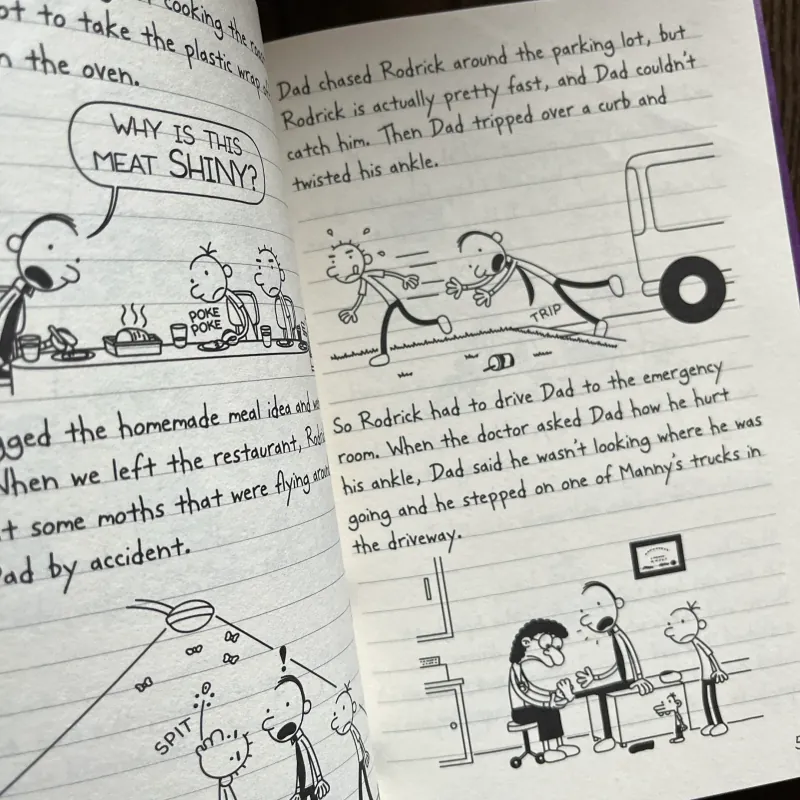 cooking the
to take the plastic wrap
the oven.
WHY IS THIS
MEAT SHINY?
POKE
POKE
the homemade meal idea and
When we left the restaurant,
some moths that were flying
by accident.
SPIT
!
Dad chased Rodrick around the parking lot, but
Rodrick is actually pretty fast, and Dad couldn't
catch him. Then Dad tripped over a curb and
twisted his ankle.
TRIP
So Rodrick had to drive Dad to the emergency
room. When the doctor asked Dad how he hurt
his ankle, Dad said he wasn't looking where he was
going and he stepped on one of Manny's trucks in
the driveway.